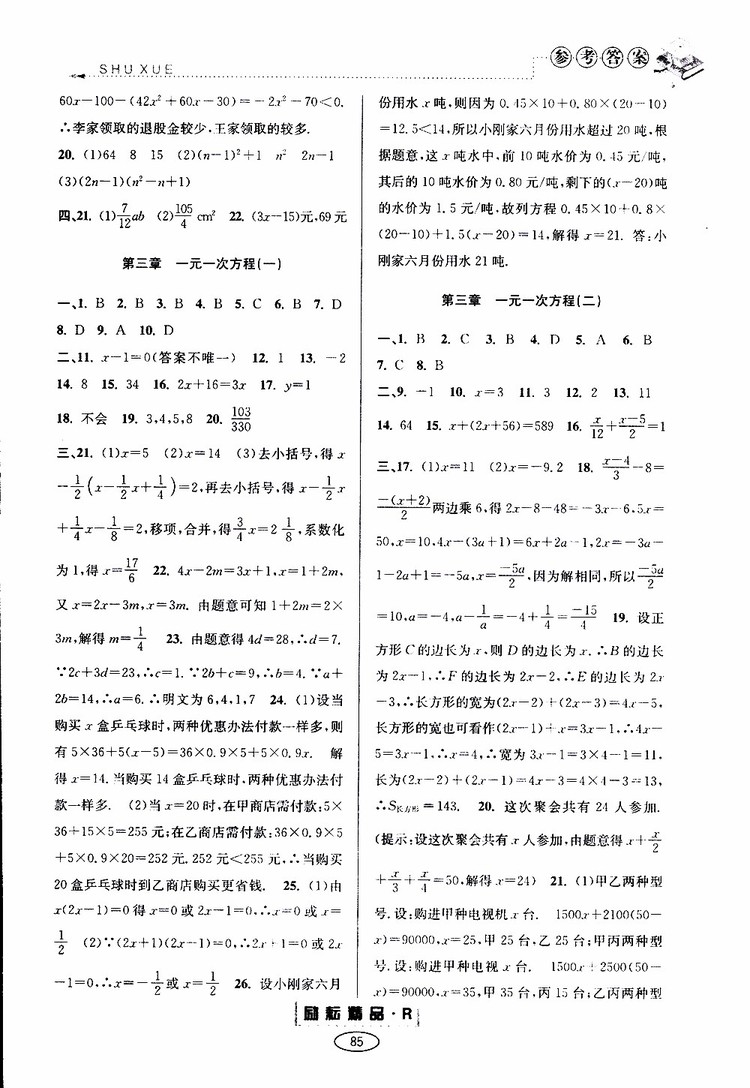 SHU XUE
参考答案
60x-100-(42x²+60x-30)=-2x²-70<0.
∴李家领取的退股金较少,王家领取的较多.
20. (1)64 8 15 (2)(n-1)²+1 n² 2n-1
(3)(2n-1)(n²-n+1)
四、21. (1)7/12ab (2)105/4 cm² 22. (3x-15)元,69元
第三章 一元一次方程(一)
一、1. B 2. B 3. B 4. B 5. C 6. B 7. D
8. D 9. A 10. D
二、11. x-1=0(答案不唯一) 12. 1 13. -2
14. 8 15. 34 16. 2x+16=3x 17. y=1
18. 不会 19. 3,4,5,8 20. 103/330
三、21. (1)x=5 (2)x=14 (3)去小括号,得 x
-1/2(x-1/2x+1/4)=2,再去小括号,得 x-1/2x
+1/4x-1/8=2,移项,合并,得3/4x=2 1/8,系数化
为1,得x=17/6 22. 4x-2m=3x+1,x=1+2m,
又 x=2x-3m,x=3m. 由题意可知 1+2m=2×
3m,解得 m=1/4 23. 由题意得 4d=28,∴d=7.
∵2c+3d=23,∴c=1. ∵2b+c=9,∴b=4. ∵a+
2b=14,∴a=6. ∴明文为 6,4,1,7 24. (1)设当
购买 x 盒乒乓球时,两种优惠办法付款一样多,则
有 5×36+5(x-5)=36×0.9×5+5×0.9x. 解
得 x=14. 当购买 14 盒乒乓球时,两种优惠办法付
款一样多. (2)当 x=20 时,在甲商店需付款:5×
36+15×5=255 元;在乙商店需付款:36×0.9×5
+5×0.9×20=252 元. 252 元<255 元,∴当购买
20 盒乒乓球时到乙商店购买更省钱. 25. (1)由
x(2x-1)=0 得 x=0 或 2x-1=0,∴x=0 或 x=
1/2 (2)∵(2x+1)(2x-1)=0,∴2x+1=0 或 2x
-1=0,∴x=-1/2 或 x=1/2 26. 设小刚家六月
份用水 x 吨,则因为 0.45×10+0.80×(20-10)
=12.5<14,所以小刚家六月份用水超过 20 吨,根
据题意,这 x 吨水中,前 10 吨水价为 0.45 元/吨,
其后的 10 吨水价为 0.80 元/吨,剩下的(x-20)吨
的水价为 1.5 元/吨,故列方程 0.45×10+0.8×
(20-10)+1.5(x-20)=14,解得 x=21. 答:小
刚家六月份用水 21 吨.
第三章 一元一次方程(二)
一、1. B 2. C 3. B 4. D 5. A 6. B
7. C 8. B
二、9. -1 10. x=3 11. 3 12. 2 13. 11
14. 64 15. x+(2x+56)=589 16. x/12+(x-5)/2=1
三、17. (1)x=11 (2)x=-9.2 18. (x-4)/3-8=
-(x+2)/2 两边乘 6,得 2x-8-48=-3x-6,5x=
50,x=10,4x-(3a+1)=6x+2a-1,2x=-3a-
1-2a+1=-5a,x=-5a/2,因为解相同,所以-5a/2
=10,a=-4,a-1/a=-4+1/4=-15/4 19. 设正
方形 C 的边长为 x,则 D 的边长为 x. ∴B 的边长
为 2x-1,∴F 的边长为 2x-2,∴E 的边长为 2x
-3,∴长方形的宽为(2x-2)+(2x-3)=4x-5,
长方形的宽也可看作(2x-1)+x=3x-1,∴4x-
5=3x-1,∴x=4,∴宽为 3x-1=3×4-1=11,
长为(2x-2)+(2x-1)=4x-3=4×4-3=13,
∴S长方形=143. 20. 这次聚会共有 24 人参加.
(提示:设这次聚会共有 x 人参加,由题意得 x+x/2
+x/3+x/4=50,解得 x=24) 21. (1)甲乙两种型
号.设:购进甲种电视机 x 台. 1500x+2100(50-
x)=90000,x=25,甲 25 台,乙 25 台;甲丙两种型
号.设:购进甲种电视 x 台. 1500x+2500(50-
x)=90000,x=35,甲 35 台,丙 15 台;乙丙两种型
励耘精品·R
85